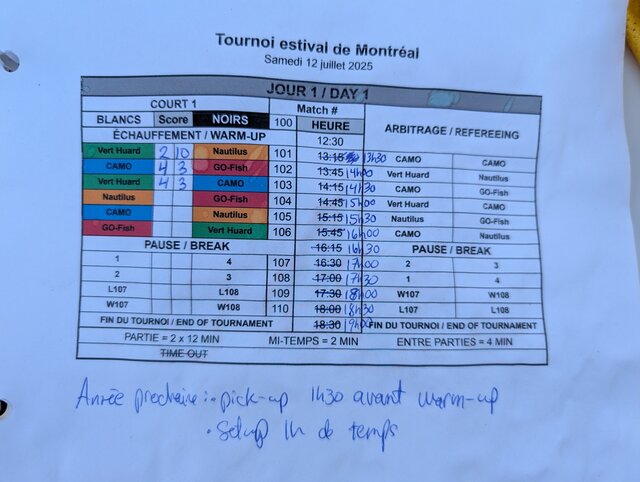 Tournoi estival de Montréal
Samedi 12 juillet 2025
JOUR 1 / DAY 1
COURT 1 Match #
BLANCS Score NOIRS 100 HEURE ARBITRAGE / REFEREEING
ÉCHAUFFEMENT / WARM-UP 12:30
Vert Huard 2 10 Nautilus 101 13:15 13h30 CAMO CAMO
CAMO 4 3 GO-Fish 102 13:45 14h00 Vert Huard Nautilus
Vert Huard 4 3 CAMO 103 14:15 14h30 CAMO GO-Fish
Nautilus GO-Fish 104 14:45 15h00 Vert Huard CAMO
CAMO Nautilus 105 15:15 15h30 Nautilus GO-Fish
GO-Fish Vert Huard 106 15:45 16h00 CAMO Nautilus
PAUSE / BREAK 16:15 16h30 PAUSE / BREAK
1 4 107 16:30 17h00 2 3
2 3 108 17:00 17h30 1 4
L107 L108 109 17:30 18h00 W107 W108
W107 W108 110 18:00 18h30 L107 L108
FIN DU TOURNOI / END OF TOURNAMENT 18:30 19h00 FIN DU TOURNOI / END OF TOURNAMENT
PARTIE = 2 x 12 MIN MI-TEMPS = 2 MIN ENTRE PARTIES = 4 MIN
TIME OUT
Année prochaine : • pick-up 1h30 avant warm-up
• Setup 1h de temps